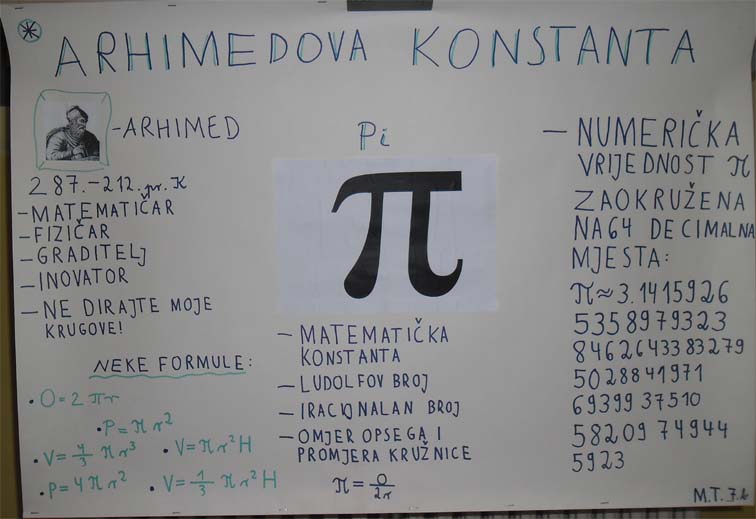 ARHIMEDOVA KONSTANTA
-ARHIMED
287.-212. pr. K
-MATEMATIČAR
-FIZIČAR
-GRADITELJ
-INOVATOR
-NE DIRAJTE MOJE
KRUGOVE!
NEKE FORMULE:
• O=2πr
• P=πr²
• V=4/3 πr³ • V=πr²H
• P=4πr² • V=1/3 πr²H
Pi
π
- MATEMATIČKA
KONSTANTA
- LUDOLFOV BROJ
- IRACIONALAN BROJ
- OMJER OPSEGA I
PROMJERA KRUŽNICE
π=O/2r
- NUMERIČKA
VRIJEDNOST π
ZAOKRUŽENA
NA 64 DECIMALNA
MJESTA:
π≈3.1415926
5358979323
8462643383279
5028841971
6939937510
5820974944
5923
M.T. 7.b